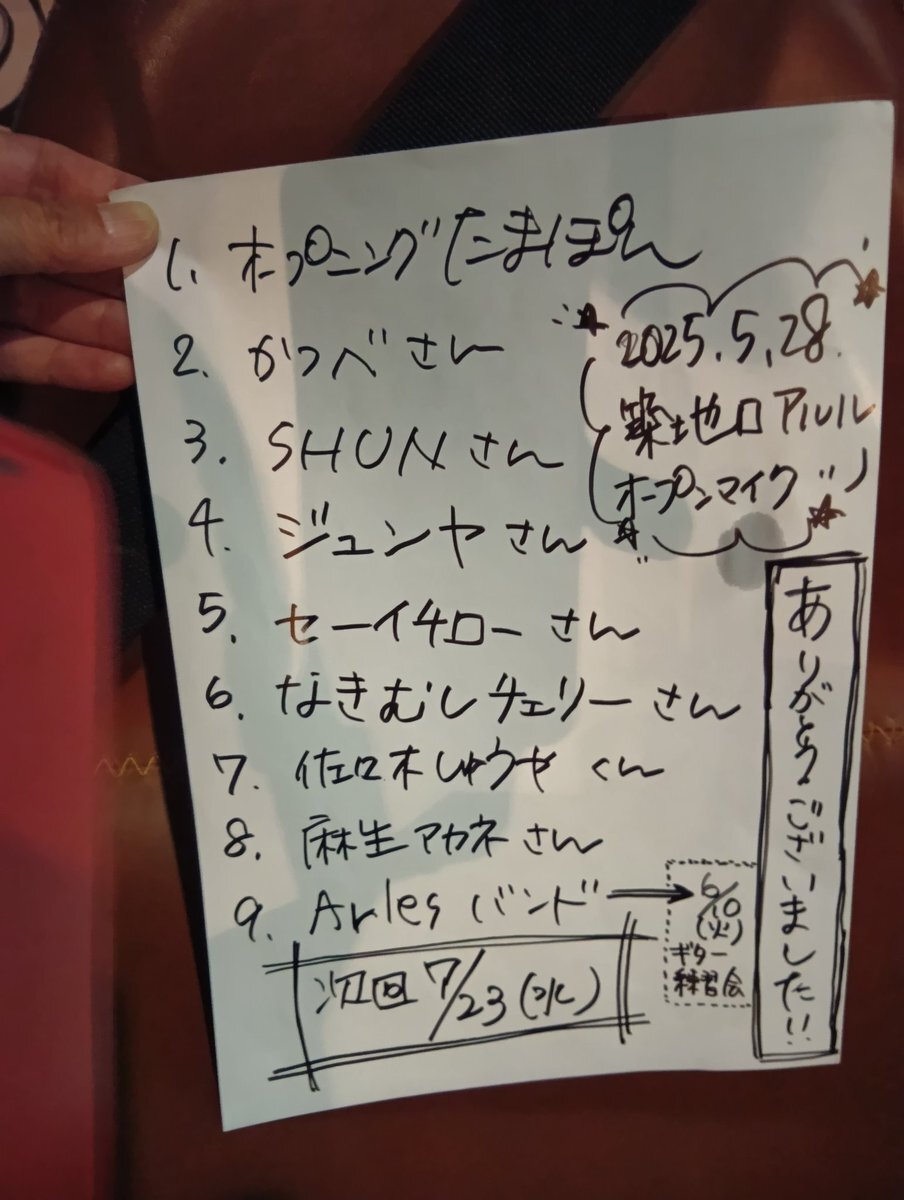 1. オープニング たまぽん
2. かつべさん
3. SHUNさん
4. ジュンヤさん
5. セーイチローさん
6. なきむしチェリーさん
7. 佐々木しゅうやくん
8. 麻生アカネさん
9. Arlesバンド →
6/10
(火)
ギター
練習会
次回7/23(水)
2025.5.28.
築地口アルル
オープンマイク
ありがとうございました!!